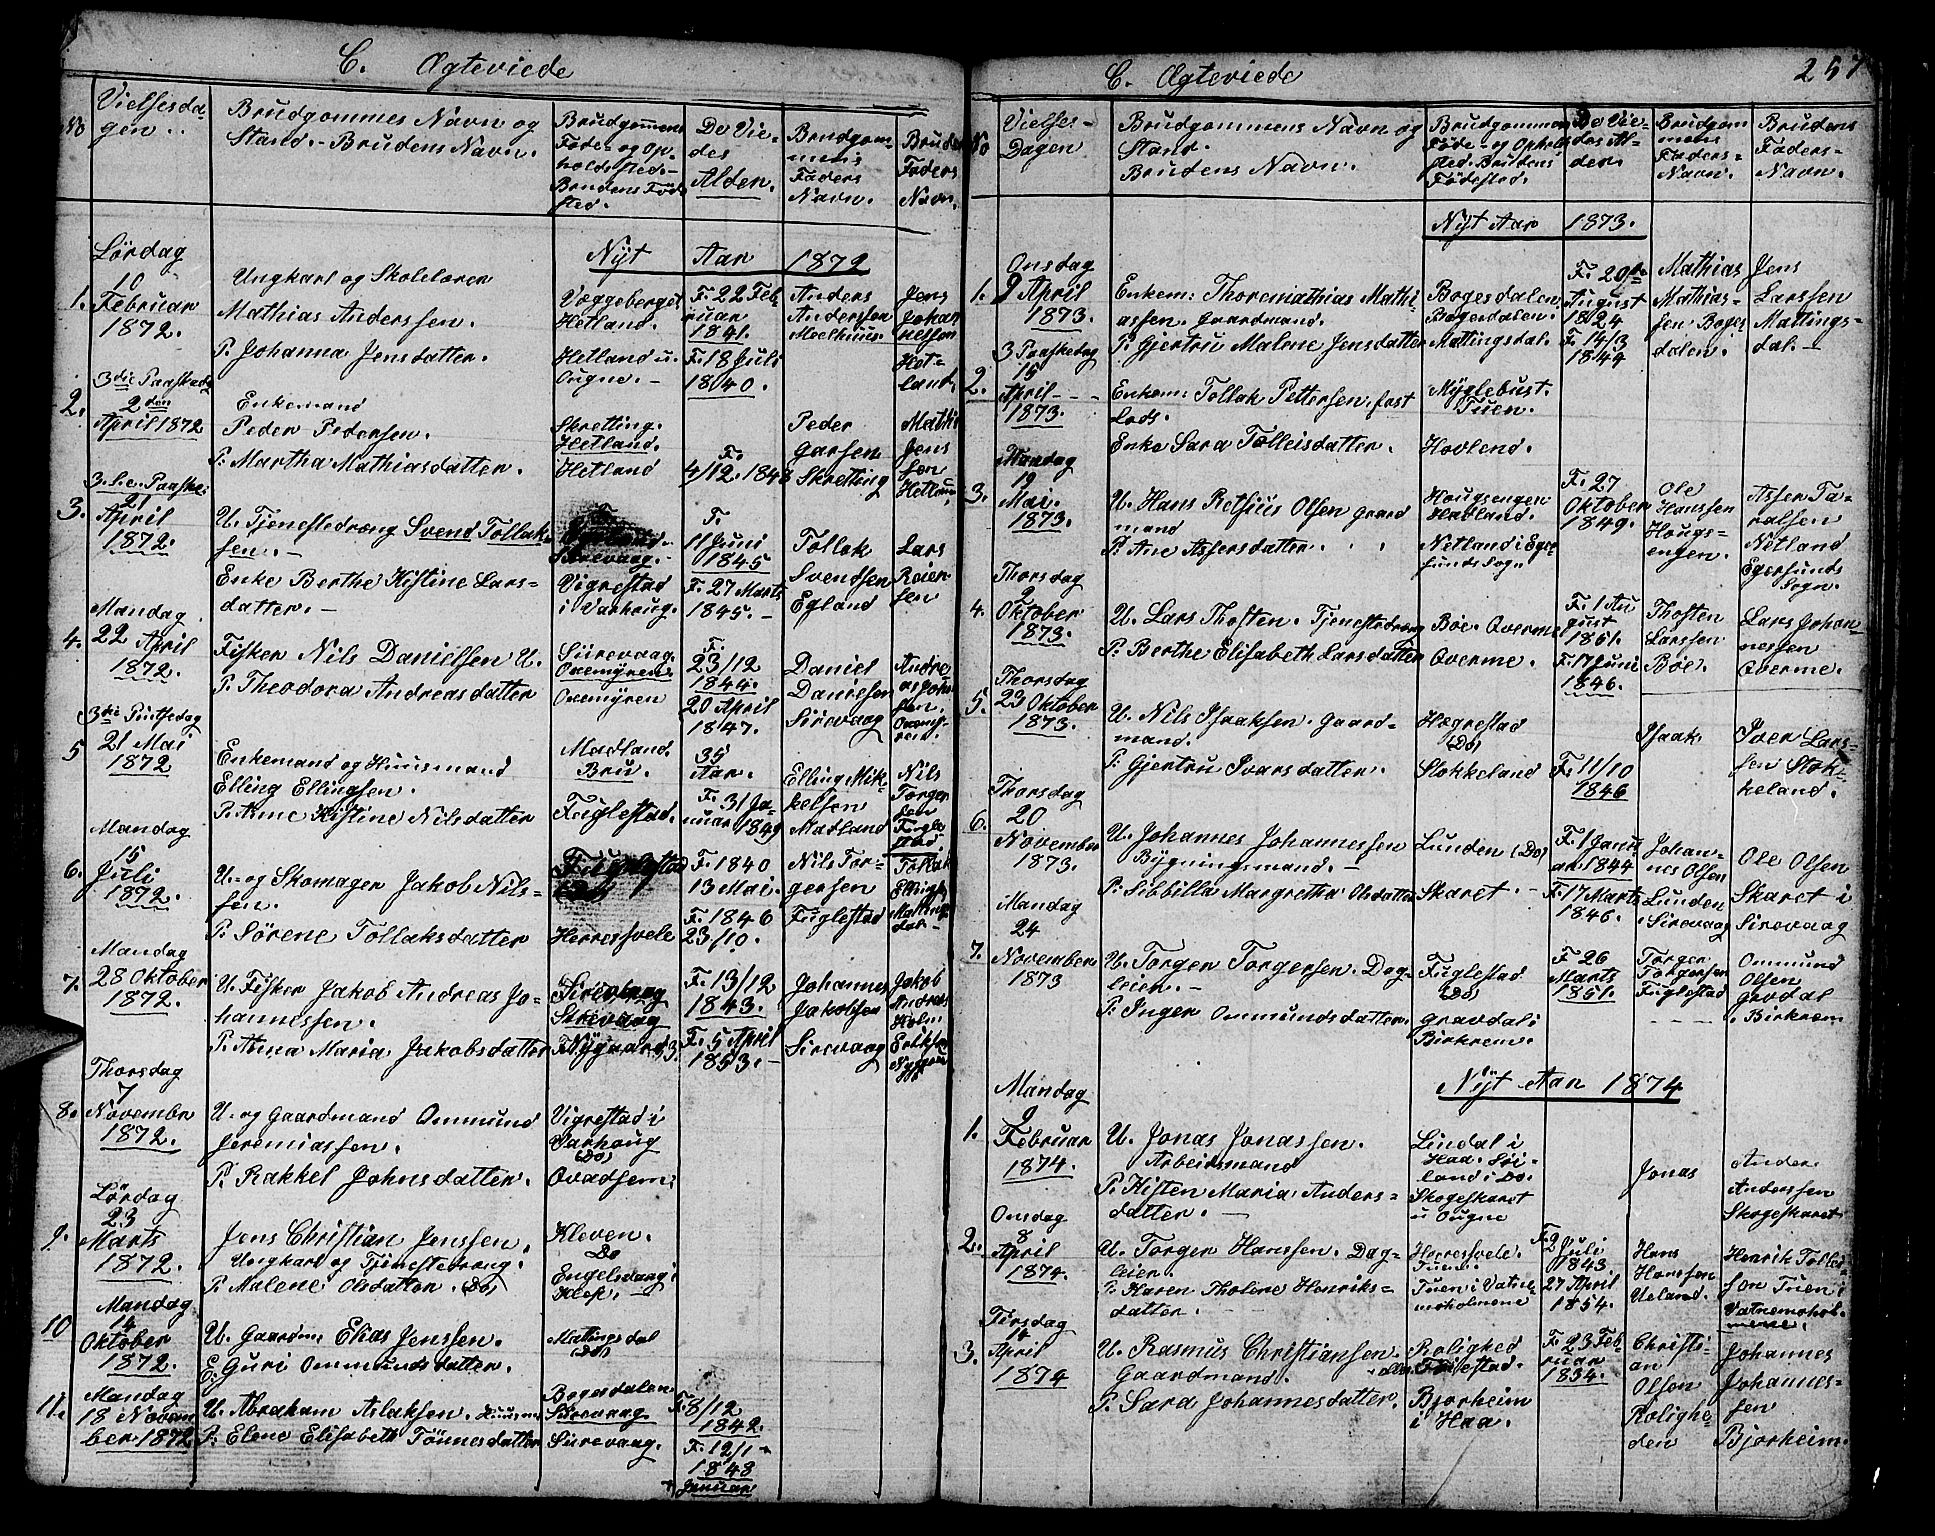 C. Ægteviede
No
Vielsesda-
gen..
Brudgommes Navn og
Stand. - Brudens Navn.
Brudgommens
Føde- og Op-
holdssted. -
Brudens Føde
sted.
De Vie-
des
Alden.
Brudgom-
mens
Faders
Navn.
Brudens
Faders
Navn.
Nyt Aar 1872
1.
Lördag
10
Februar
1872.
Ungkarl og Skolelærer
Mathias Anderssen.
P. Johanna Jensdatter.
Væggeberget
Hetland.
Hetland i
Ougne. -
F. 22 Feb
ruar
1841.
F. 18 Juli
1840.
Anders
Anderssen
Meelhuus
Jens
Johan
nessen
Het-
land.
2.
3die Paaskedag
2den
April 1872
Enkemand
Peder Pedersen.
P. Martha Mathiasdatter.
Skretting.
Hetland.
Hetland
F.
4/12. 1848
Peder
Garsen
Skretting
Mathi
Jens
sen
Hetland
3.
3. S. e. Paaske.
21
April
1872.
U. Tjenestedreng Svend Tollak-
sen. -
Enke Berthe Kistine Lars-
datter. -
Sirevaag. -
Vigrestad
i Varhoug.
F.
11 Juni
1845
F. 27 Marts
1845. -
Tollak
Svendsen
Egland
Lars
Reier
sen
4.
Mandag
22 April
1872.
Fisker Nils Danielsen U.
P. Theodora Andreasdatter
Siirevaag.
Oxemyren.
Oxemyren
F.
23/12
1844.
20 April
1847.
Daniel
Danielsen
Sirevaag
Andre-
as John
sen.
Oxemy-
ren.
5
3die Pintsedag
21 Mai
1872
Enkemand og Huusmand
Elling Ellingsen.
P. Anne Kistine Nilsdatter
Madland
Bru.
Fuglestad.
35
Aar.
F. 31 Ja-
nuar 1849
Elling Mik-
kelsen
Madland
Nils
Torger
sen
Fugle
stad.
6.
Mandag
15
Juli
1872.
U. og Skomager Jakob Nils-
sen.
P. Sörene Tollaksdatter
Fuglestad
(Do)
Herresvele
F. 1840
13 Mai.
F. 1846
23/10.
Nils Tor-
gersen
Fuglestad
Tollak
Elling
Mattings
dal -
7.
Mandag
28 Oktober
1872.
U. Fisker Jakob Andreas Jo-
hannessen.
P. Anna Maria Jakobsdatter
Sirevaag
Sirevaag
Nygaard
F. 13/12
1843.
F. 5 April
1853. -
Johannes
Jakobsen
Sirevaag
Jakob
Andreas
Holm
Eriksen
Nygaard
8.
Thorsdag
7
Novembr
1872.
U. og Gaardmand Ommund
Jeremiassen.
P. Rakkel Johnsdatter.
Vigrestad i
Varhoug
(Do)
Ovadsem.
9.
Lördag
23
Marts
1872.
Jens Christian Jenssen.
Ungkarl og Tjenestedreng.
P. Malene Olsdatter. (Do)
Kleven.
Do
Engelsvaag i
Klep.
10
Mandag
14
Oktober
1872.
U. Gaardm: Elias Jenssen.
E. Guri Ommundsdatter.
Mattingsdal
(Do)
11.
Mandag
18 Novem
ber 1872
U. Abraham Aslaksen. Huusm.
P. Elene Elisabeth Tönnesdatter
Bogesdalen
Sirevaag.
Siirevaag.
F. 8/12
1842.
F. 12/1 -
1848
Januar
C. Ægteviede
257
No
Vielses-
Dagen
Brudgommens Navn og
Stand.
Brudens Navn.
Brudgommens
Føde- og Ophold
sted. Brudens
Födestad.
De Vie-
des Al-
der.
Brudgom
mens
Faders
Navn.
Brudens
Faders
Navn.
Nyt Aar 1873.
1.
Onsdag
9 April
1873.
Enkem: Thoremathias Mathi
assen. Gaardmand.
P. Gjertru Malene Jensdatter
Bogesdalen
Bogesdalen.
Mattingsdal.
F. 29de
August
1824
F. 14/3
1844
Mathias
Mathias-
sen Boges
dalen.
Jens
Larssen
Mattings-
dal. -
2.
3 Paaskedag
15
April - - -
1873.
Enkem: Tollak Pettersen. fast
Lods.
Enke Sara Tolleisdatter.
Myglebust.
Tuen.
Hovland.
3.
Mandag
19
Mai.
1873.
U. Hans Retsius Olsen Gaard
mand
P. Ane Assersdatter. . .
Hougsengen
Hadland.
Netland i Eger
sunds Sogn
F. 27
Oktober
1849.
Ole
Hanssen
Hougs-
engen.
Asser Ta-
ralsen
Netland
Egersunds
Sogn.
4.
Thorsdag
2
Oktober
1873.
U. Lars Thosten. Tjenestedreng
P. Berthe Elisabeth Larsdatter
Böe. Qverme
Qverme.
F. 1 Au
gust
1851.
F. 17 Juni
1846.
Thosten
Larssen
Böe.
Lars Johan-
nessen
Qverme.
5.
Thorsdag
23 Oktober
1873.
U. Nils Isaaksen. Gaard-
mand.
P. Gjertru Ivarsdatter.
Hægrestad
(Do)
Stokkeland
F. 11/10
1846
Isaak
Iver Lars-
sen Stok-
keland.
6.
Thorsdag
20
November
1873.
U. Johannes Johannessen
Bygningsmand. -
P. Sibbilla Margretha Olsdatter
Lunden (Do)
Skaret. -
F. 1 Janu
ar 1844
F. 17 Marts
1846.
Johan-
nes Olsen
Lunden
Sirevaag
Ole Olsen
Skaret i
Sirevaag
7.
Mandag
24
November
1873
U. Torger Torgersen. Dag-
leier. -
P. Inger Ommundsdatter.
Fuglestad
(Do)
Gravdal i
Birkrem.
F. 26
Marts
1851.
Torger
Torgersen
Fuglestad
Ommund
Olsen
Gravdal
Birkrem
Nyt Aar 1874
1.
Mandag
9
Februar
1874.
U. Jonas Jonassen.
Arbeidsmand
P. Kisten Maria Anders-
datter. -
Lindal i
Haa. Söi-
land i Do.
Skogeskaret
i Ougne
Jonas
Ander
Anderssen
Skogeskaret
2.
Onsdag
8
April
1874.
U. Torger Hanssen. Dag-
leier.
P. Karen Tholene Henriks-
datter.
Herresvele.
Tuen.
Tuen i Vatne-
moholmene
F. 2 Juli
1843.
27 April
1854.
Hans
Hanssen
Ueland.
Henrik Tolleis-
sen Tuen i
Vatnemohol-
mene.
3.
Tirsdag
14
April
1874
U. Rasmus Christiansen.
Gaardmand.
P. Sara Johannesdatter.
Rolighed
Bjorheim
i Haa.
F. 23 Feb
ruar
1834.
Christi-
an
Olsen
Rolighe-
den
Johannes
Johannes-
sen
Bjorheim.